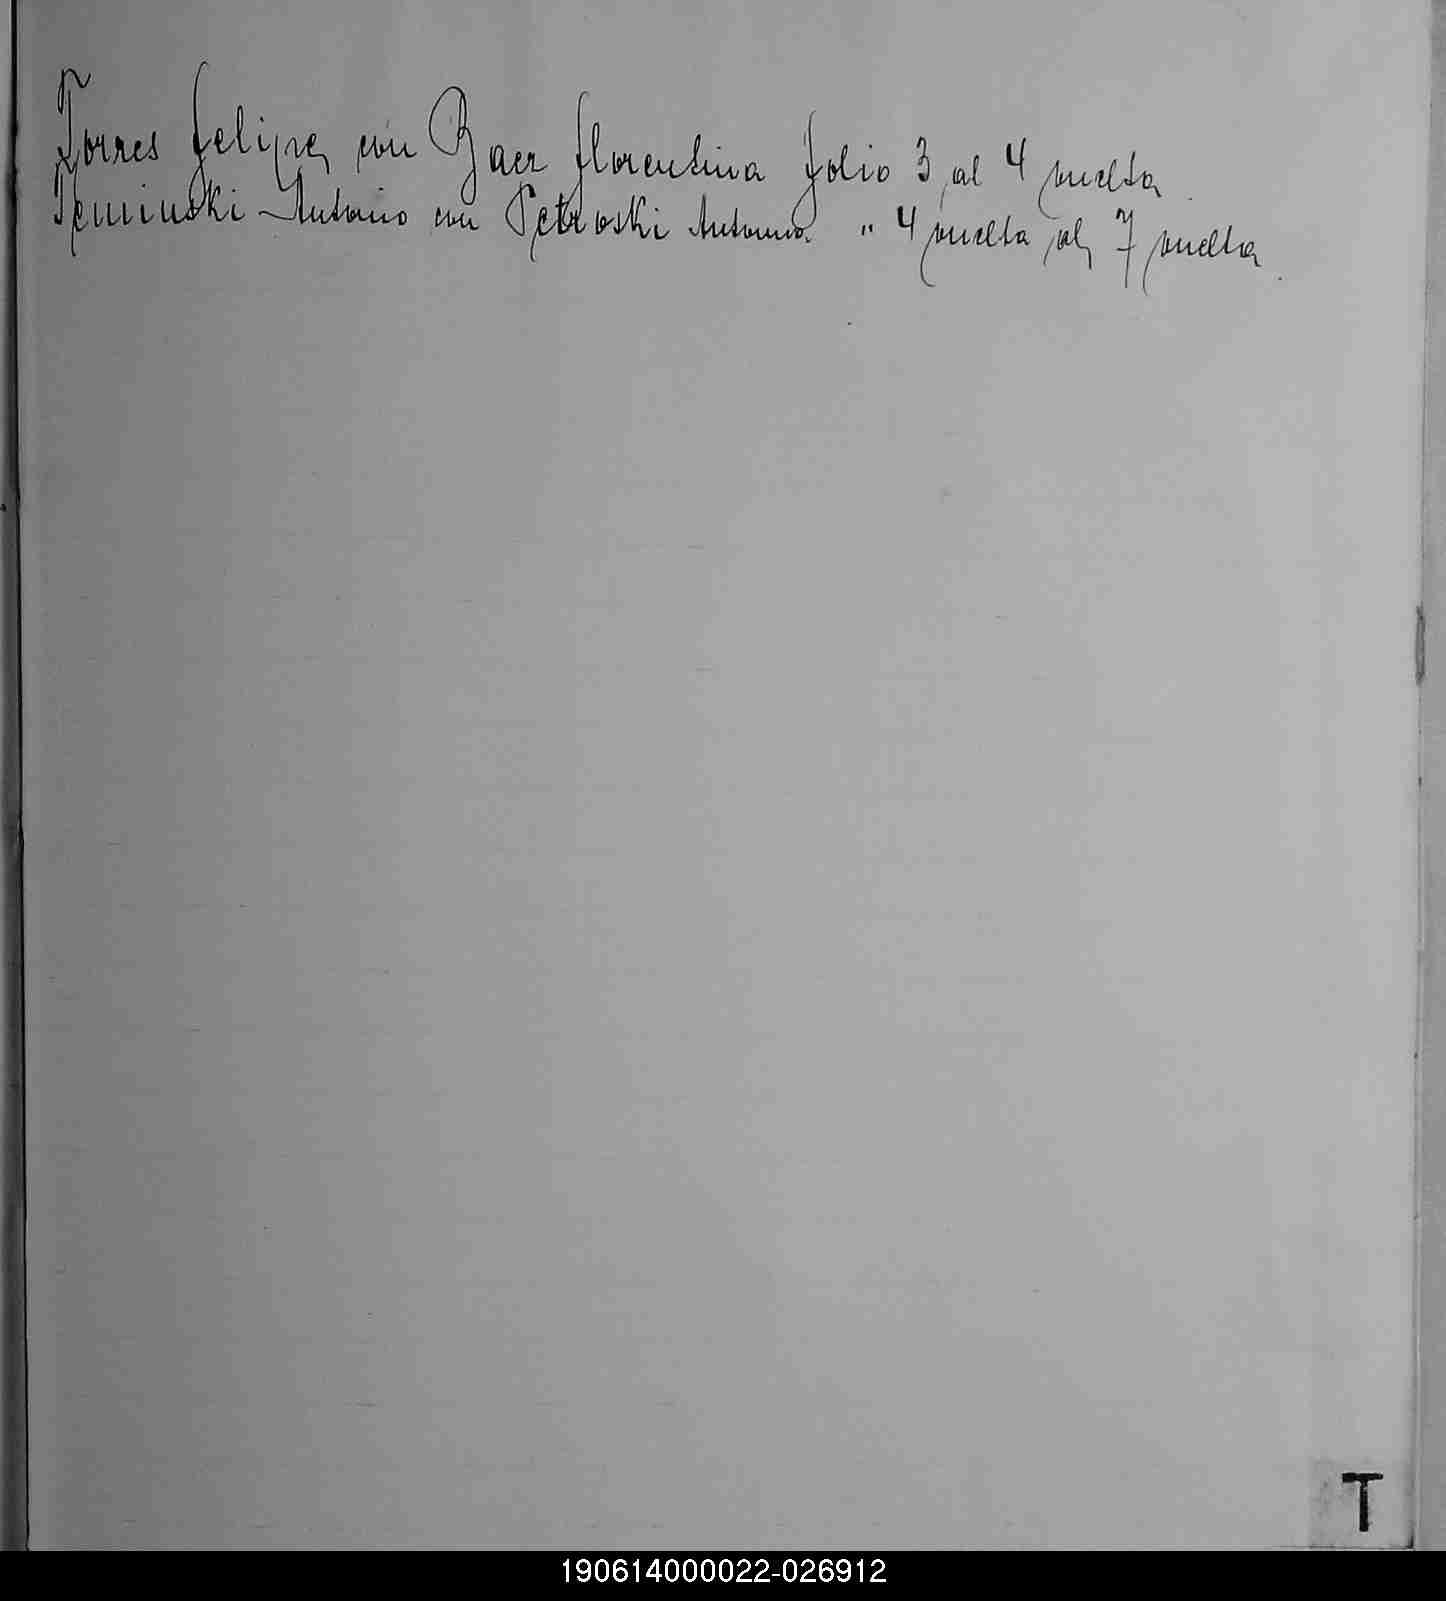 Torres Felipe con Baer Florentina Folio 3 al 4 vuelta
Teminski Antonio con Petroski Antonina " 4 vuelta al 7 vuelta.
T
190614000022-026912